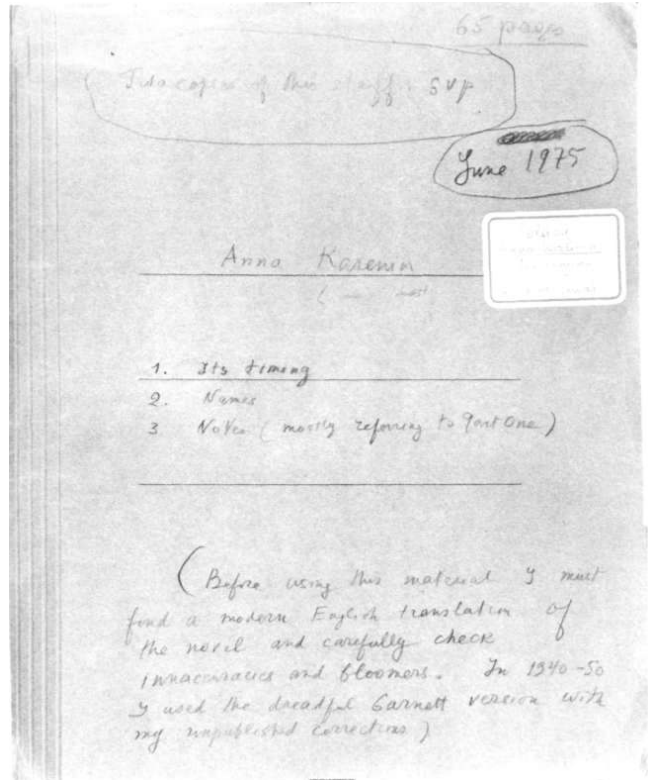 65 pages
Two copies of this stuff svp
June 1975
Anna Karenin
1. Its timing
2. Names
3 Notes (mostly referring to Part One)
(Before using this material I must
find a modern English translation of
the novel and carefully check
innaccuracies and bloomers. In 1940-50
I used the dreadful Garnett version with
my unpublished corrections)